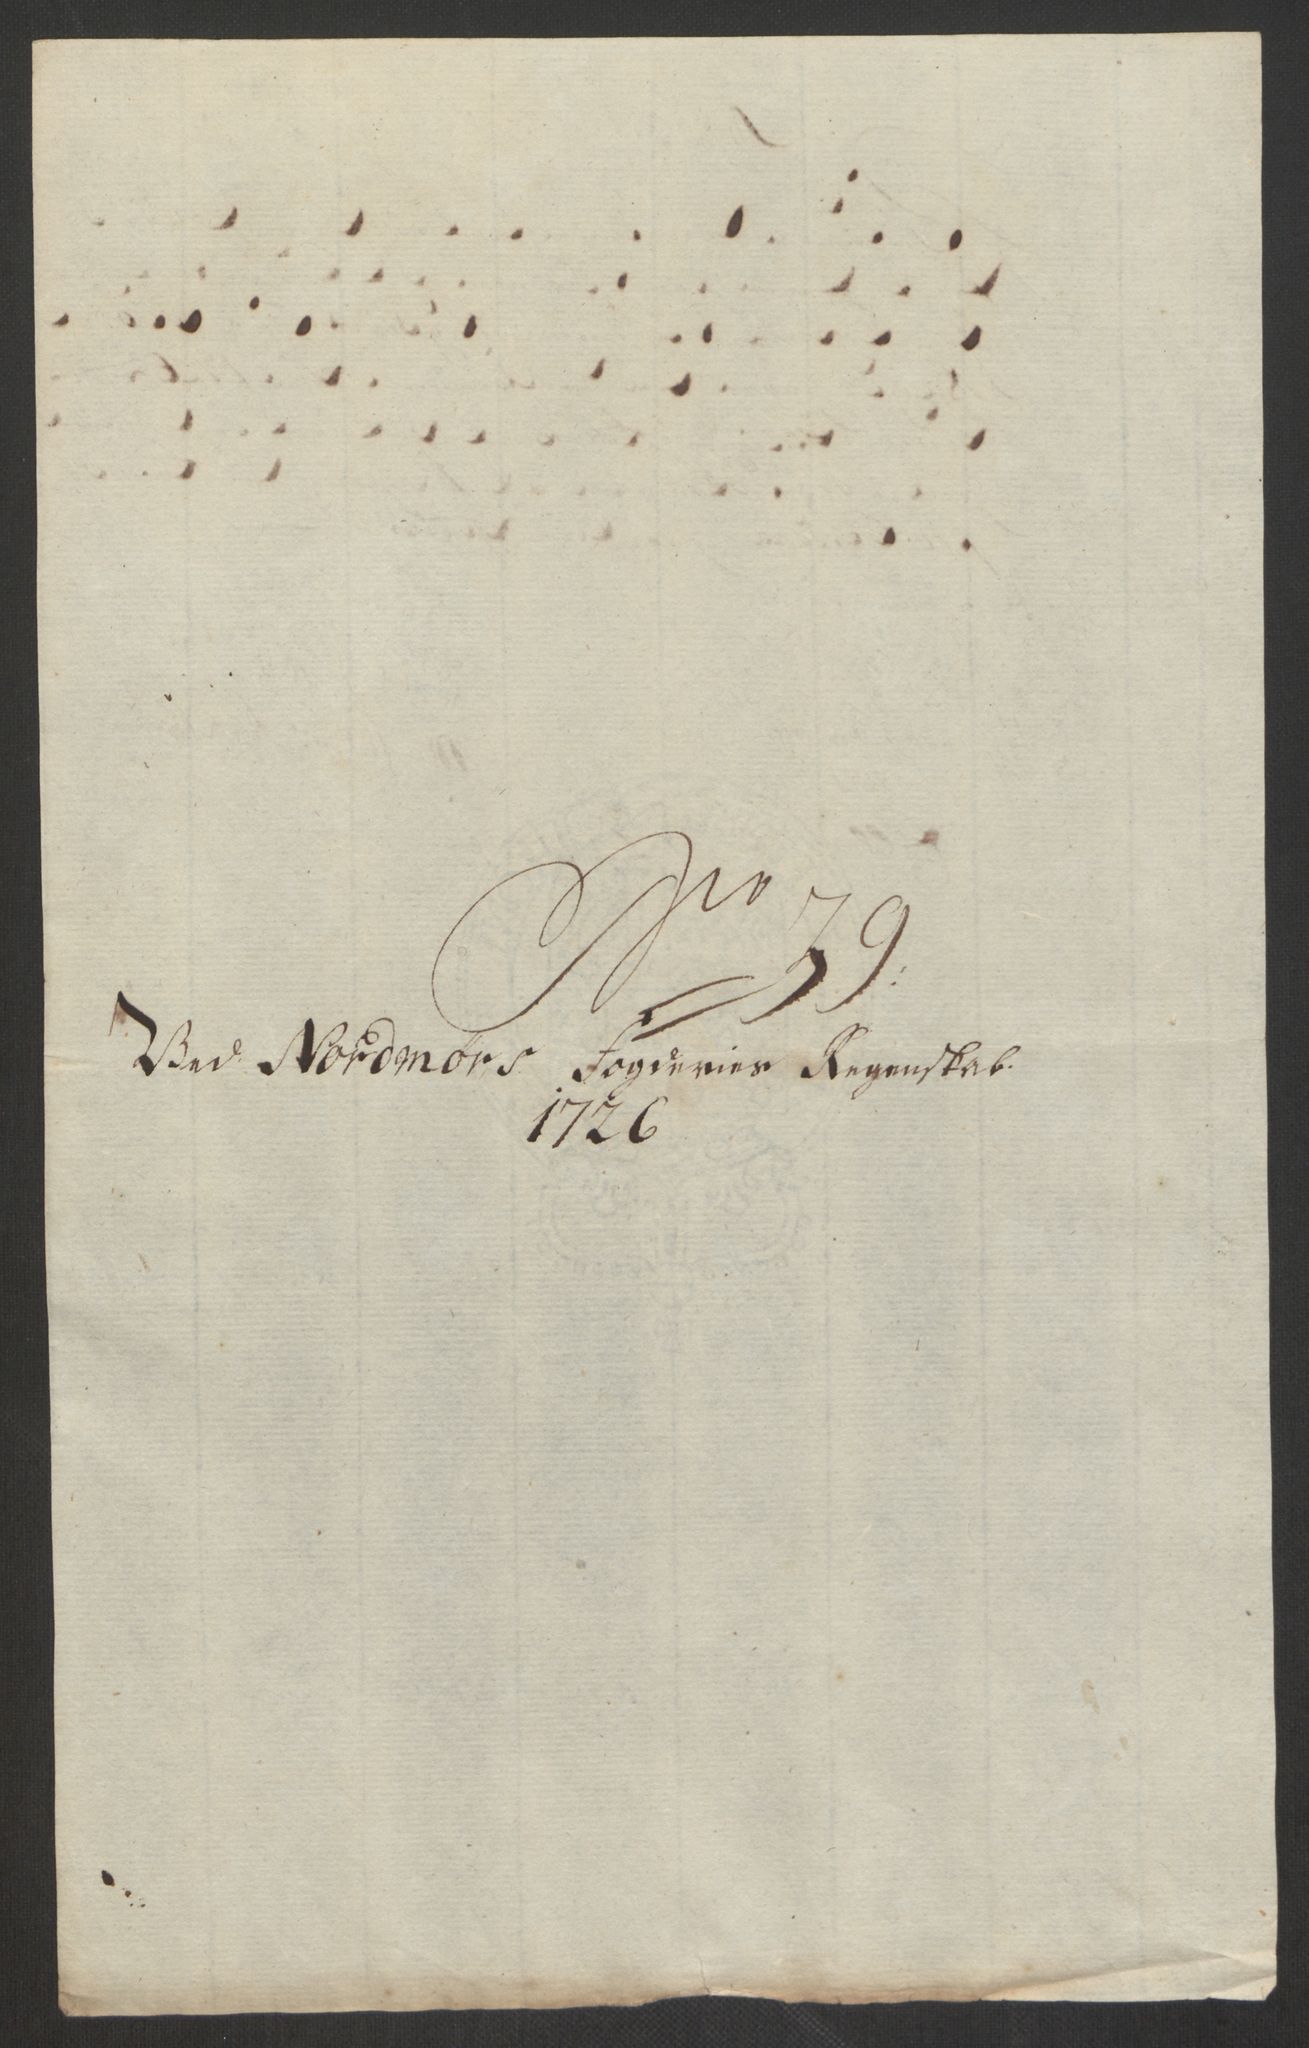 No 39.
Ved Nordmørs Fogderies Regenskab.
1726